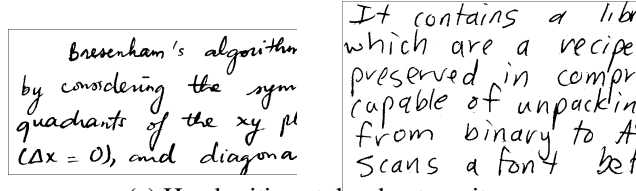 Bresenham's algorithm
by considering the sym
quadrants of the xy pl
(Δx = 0), and diagona
It contains a libr
which are a recipe
preserved in compr
capable of unpackin
from binary to A
Scans a font bet